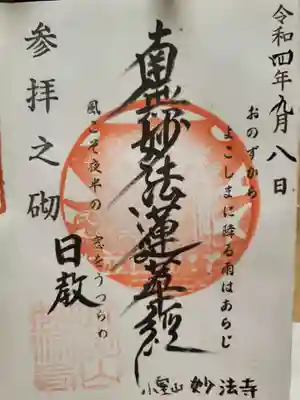 令和四年九月八日
おのずから
よこしまに降る雨はあらじ
南無妙法蓮華経
風こそ夜半の
窓をうつらめ
参拝之砌
日敬
小室山 妙法寺